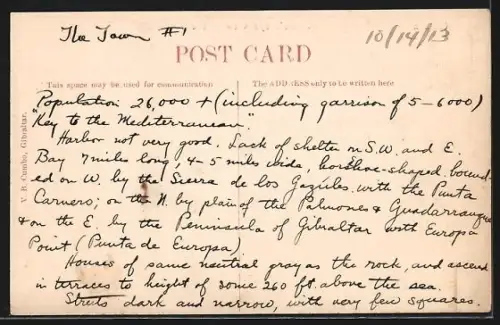 The Town #1
10/14/13
POST CARD
This space may be used for communication
The ADDRESS only to be written here
V. B. Cumbo, Gibraltar.
"Population 26,000 + (including garrison of 5-6000)
"Key to the Mediterranean."
Harbor not very good. Lack of shelter on S.W. and E.
Bay 7 miles long, 4-5 miles wide, horshoe-shaped. bound-
ed on W. by the Sierra de los Gazules with the Punta
Carnero; on the N. by plain of the Palmones & Guadarranque
& on the E. by the Peninsula of Gibraltar with Europa
Point (Punta de Europa)
Houses of same neutral gray as the rock, and ascend
in terraces to height of some 260 ft. above the sea.
Streets dark and narrow, with very few squares.